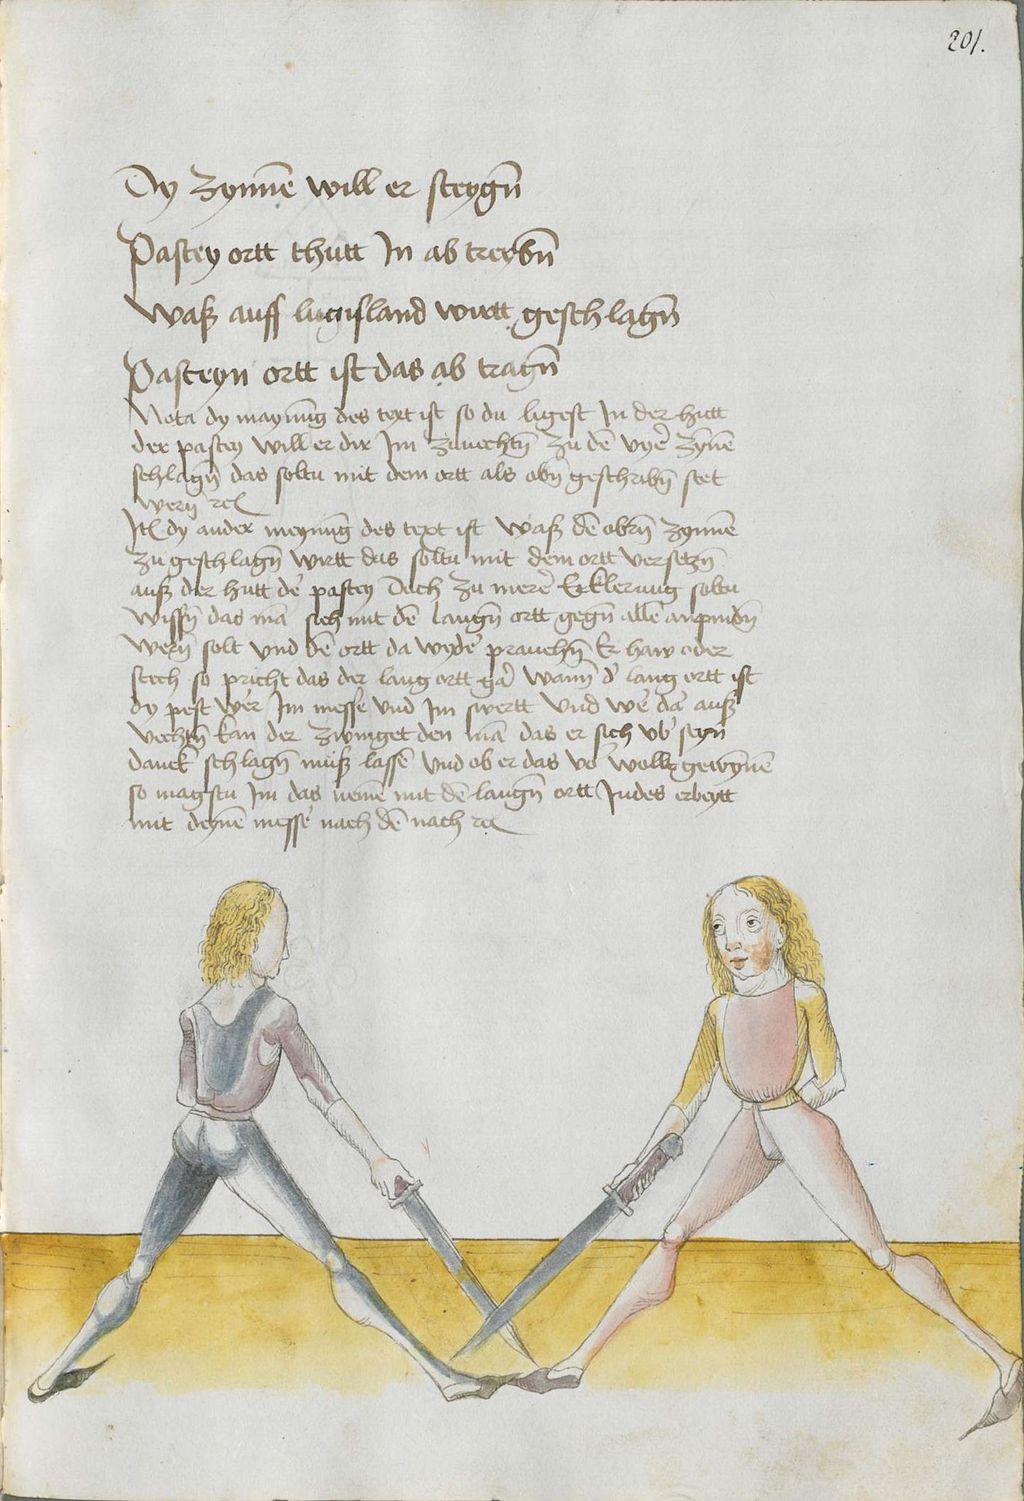 201.
Dy zynnē will er steygn̄
Pastey ortt thutt In ab treybn̄
Waß auff luginsland wirtt geschlagn̄
Pasteyn ortt ist das ab tragn̄
Nota dy maynūg des text ist so du ligest In der hutt
der pastey will er dir Im zuuechtn̄ zu dē zynē
schlagn̄ das soltu mit dem ortt als obn̄ geschribn̄ stet
wern rc̄
Itē dy ander meynūg des text ist waß dē obrn̄ zynnē
zu geschlagn̄ wirtt das soltu mit dem ortt versetzn̄
auß der hutt d' pastey Doch zu merer Erklerung soltu
wissn̄ das mā sich mit dē langn̄ ortt gegn̄ allē anpindn̄
wern̄ solt vnd dē ortt da wyd' prauchn̄ Er haw oder
stech so pricht das der lang ortt gar wann d' lang ortt ist
dy pest wer Im messer vnd Im swertt vnd wer dar auß
vechtn̄ kan der zwinget den mā das er sich vb' seyn
danck schlagn̄ muß lassē vnd ob er das vor wollt gewynnē
so magstu Im das nemē mit dē langn̄ ortt Indes erbeytt
mit deynē messer nach dē nach rc̄